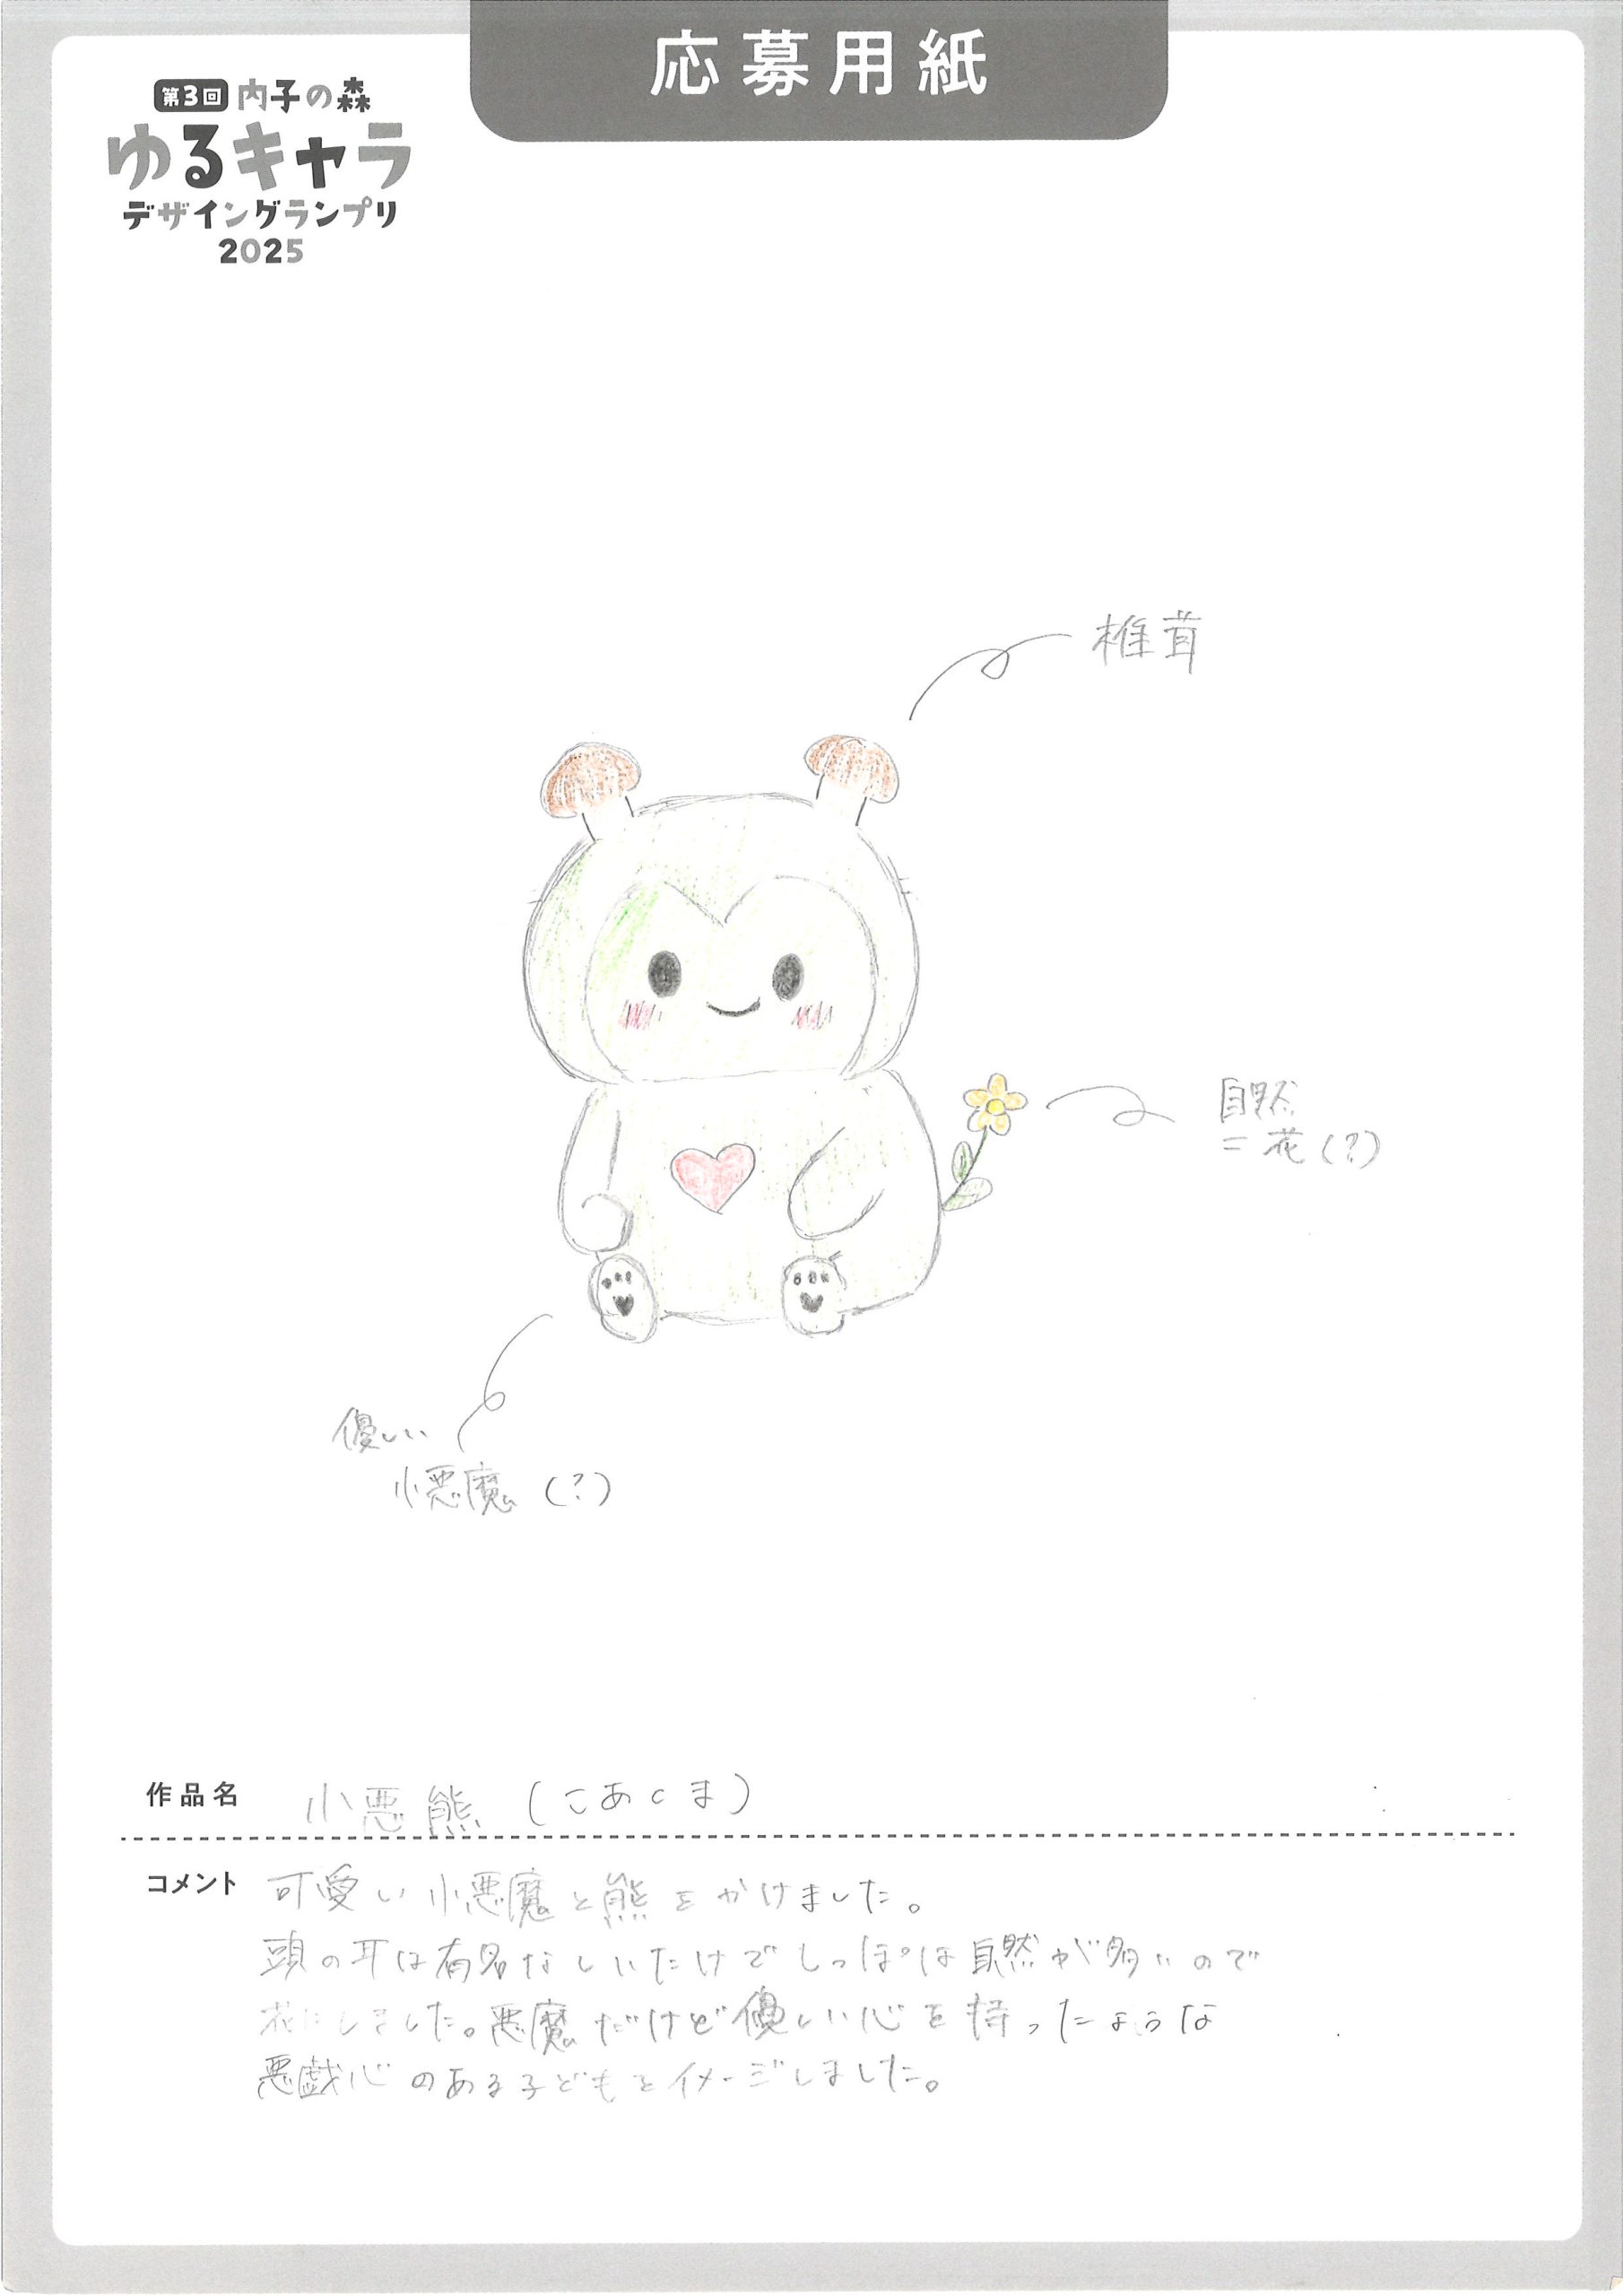 応募用紙
第3回 内子の森
ゆるキャラ
デザイングランプリ
2025
椎茸
自然
=花(?)
優しい
小悪魔(?)
作品名 小悪熊(こあくま)
コメント 可愛い小悪魔と熊をかけました。
頭の耳は有名なしいたけでしっぽは自然が多いので
花にしました。悪魔だけど優しい心を持ったような
悪戯心のある子どもをイメージしました。